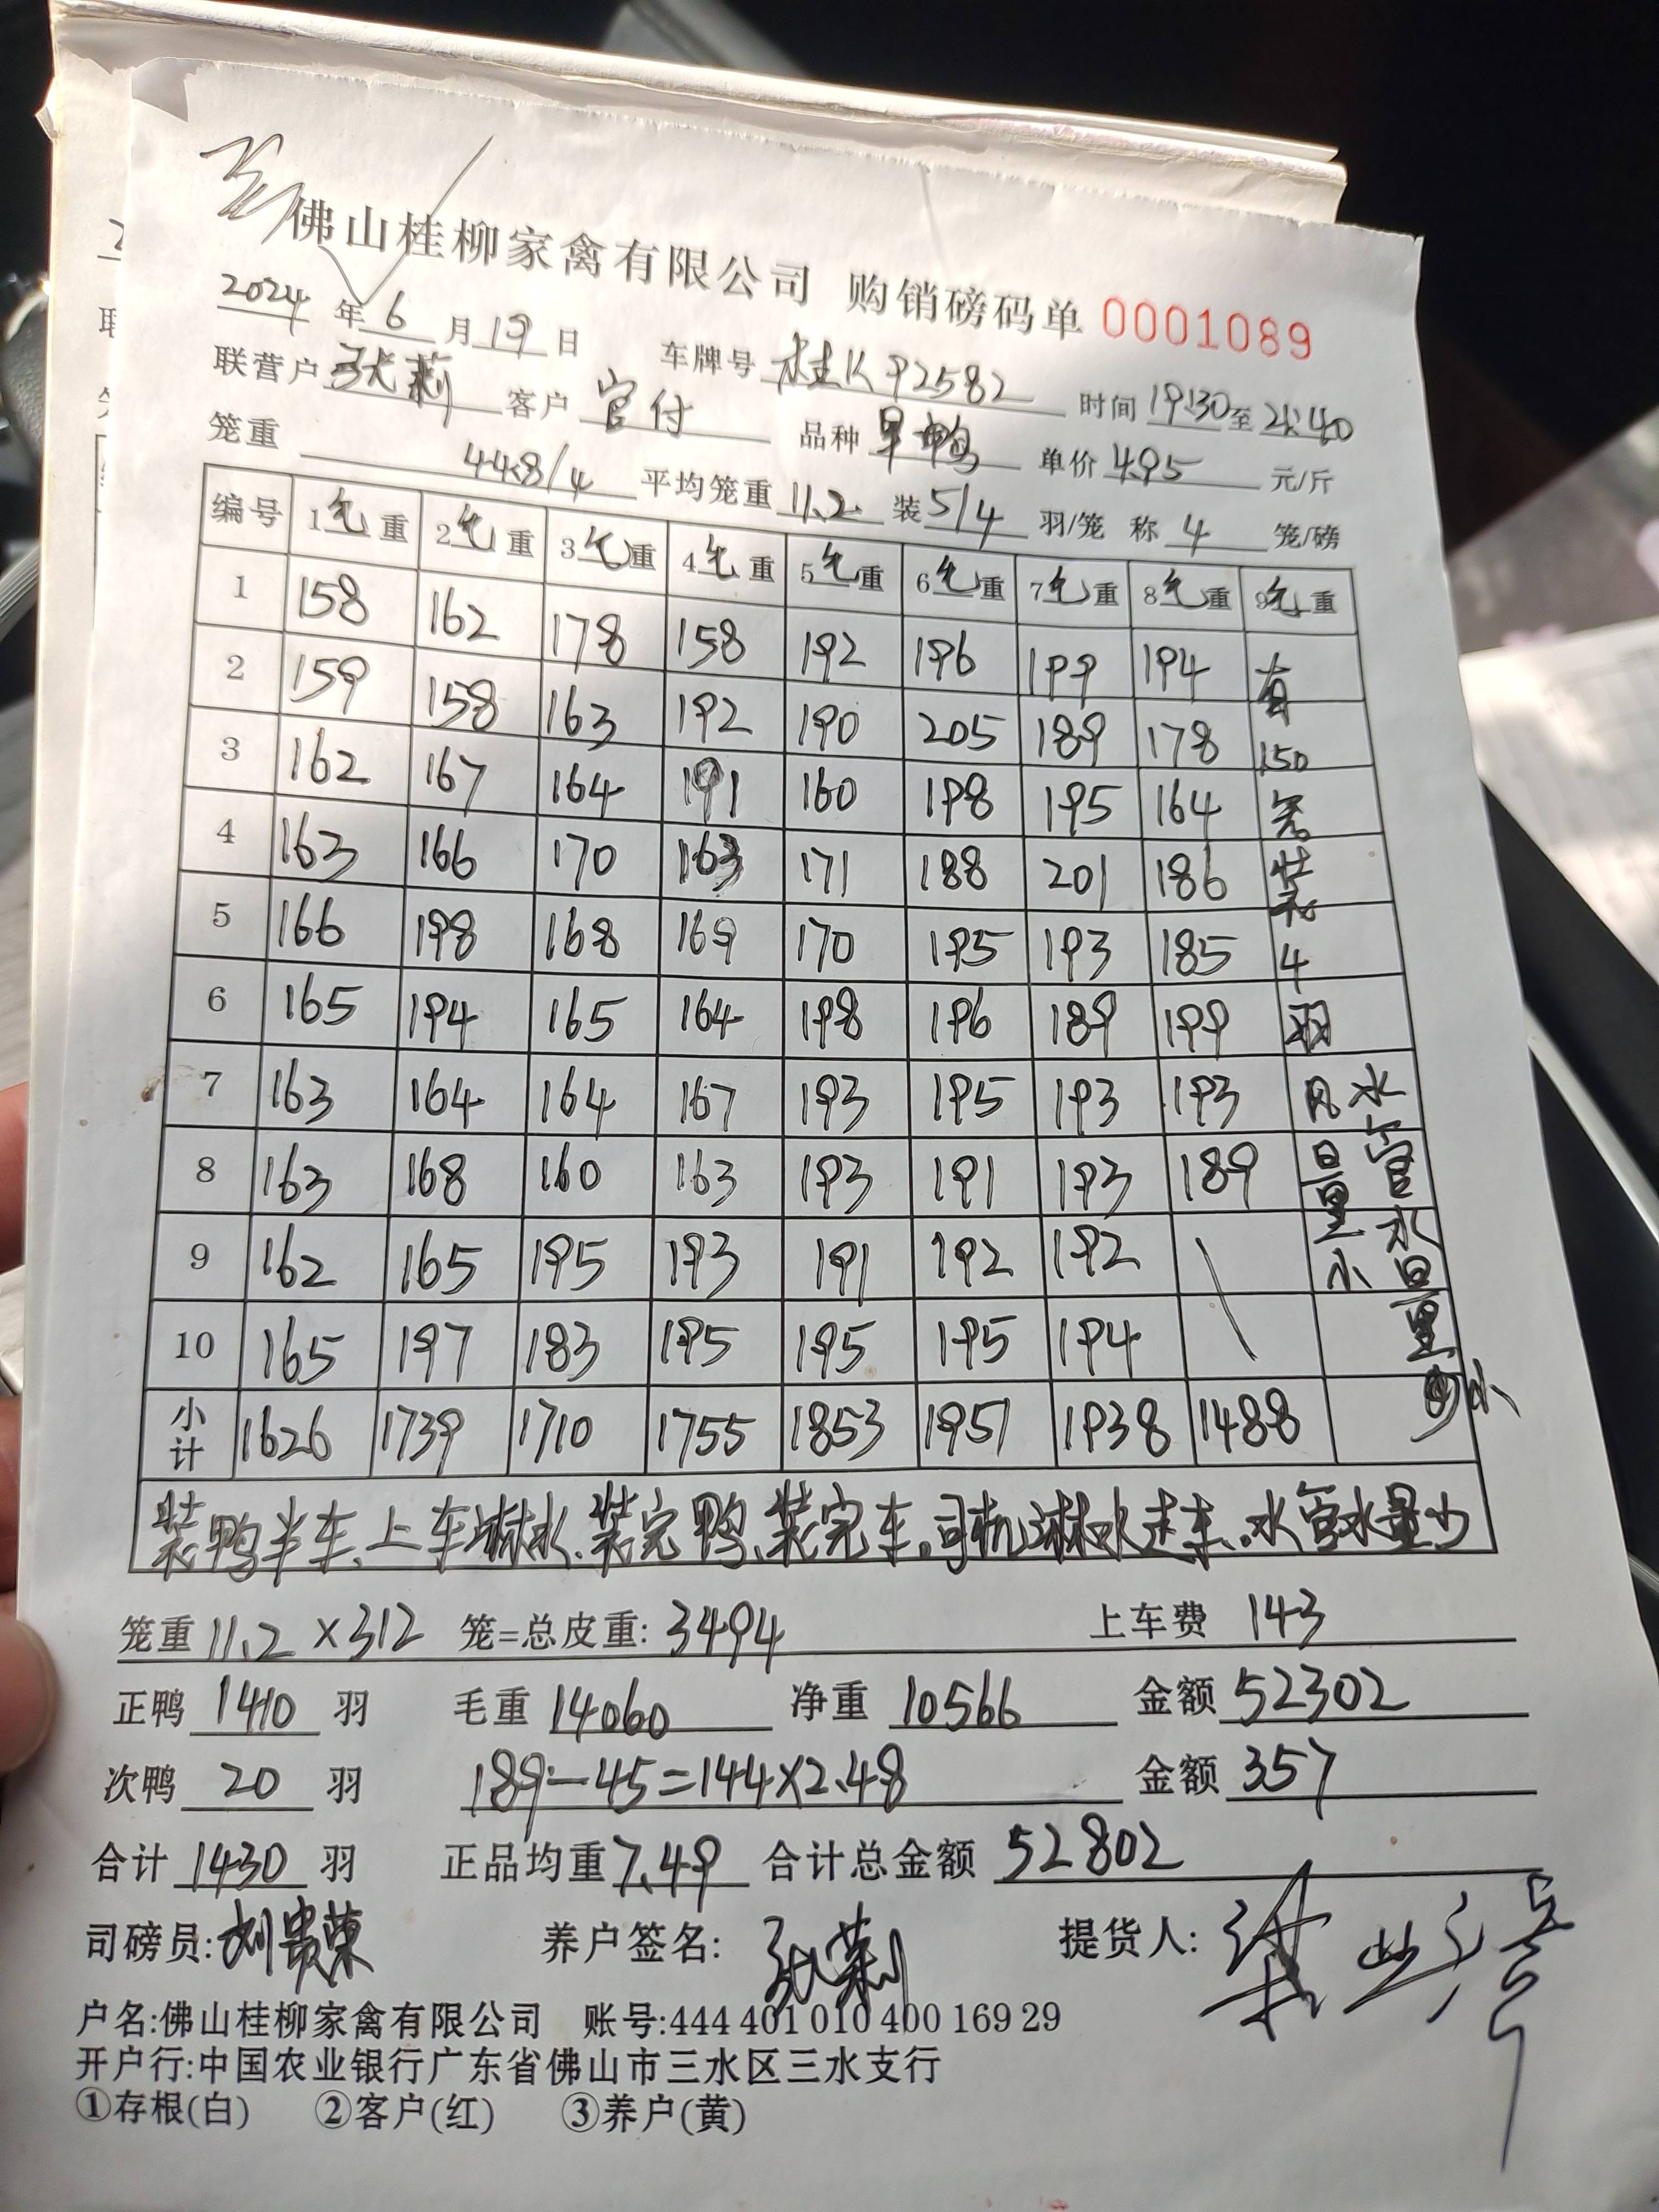 佛山桂柳家禽有限公司 购销磅码单 0001089
2024 年 6 月 19 日 车牌号 桂K92582 时间 19:30 至 21:40
联营户 张莉 客户 官付 品种 旱鸭 单价 4.95 元/斤
笼重 44.8/4 平均笼重 11.2 装 5/4 羽/笼 称 4 笼/磅
编号 1毛重 2毛重 3毛重 4毛重 5毛重 6毛重 7毛重 8毛重 9毛重
1 158 162 178 158 192 196 199 194 有
2 159 158 163 192 190 205 189 178 150
3 162 167 164 191 160 198 195 164 笼
4 163 166 170 163 171 188 201 186 装
5 166 198 168 169 170 195 193 185 4
6 165 194 165 164 198 196 189 199 羽
7 163 164 164 167 193 195 193 193 水
8 163 168 160 163 193 191 193 189 量 官
9 162 165 195 193 191 192 192 小 水
10 165 197 183 195 195 195 194 量
小计 1626 1739 1710 1755 1853 1951 1938 1488 小
装鸭半车、上车淋水、装完鸭、装完车。司机淋水走车。水官水量少
笼重 11.2 ×312 笼=总皮重: 3494 上车费 143
正鸭 1410 羽 毛重 14060 净重 10566 金额 52302
次鸭 20 羽 189-45=144×2.48 金额 357
合计 1430 羽 正品均重 7.49 合计总金额 52802
司磅员: 刘贵荣 养户签名: 张莉 提货人:
户名:佛山桂柳家禽有限公司 账号:444 401 010 400 169 29
开户行:中国农业银行广东省佛山市三水区三水支行
①存根(白) ②客户(红) ③养户(黄)